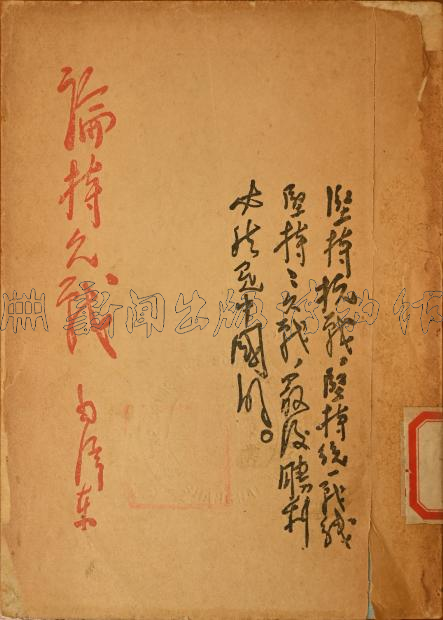 堅持抗戰,堅持統一戰線
堅持〻久戰,最後勝利
必然是中國的。
論持久戰
毛澤東
新聞出版博物館